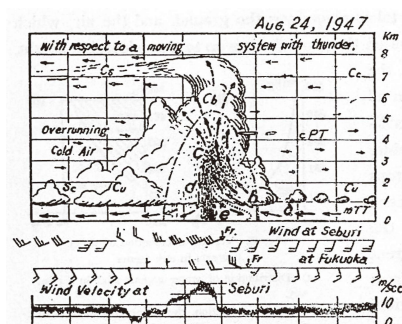 Aug. 24, 1947
Km
with respect to a moving system with thunder.
8
Cs
Cc
7
Cb
6
5
Overrunning
cPT
4
Cold Air
C
3
Sc Cu d b Cu
2
1
e a mTT
0
Fr. Wind at Seburi
Fr at Fukuoka
Wind Velocity at Seburi m/sec
10
0